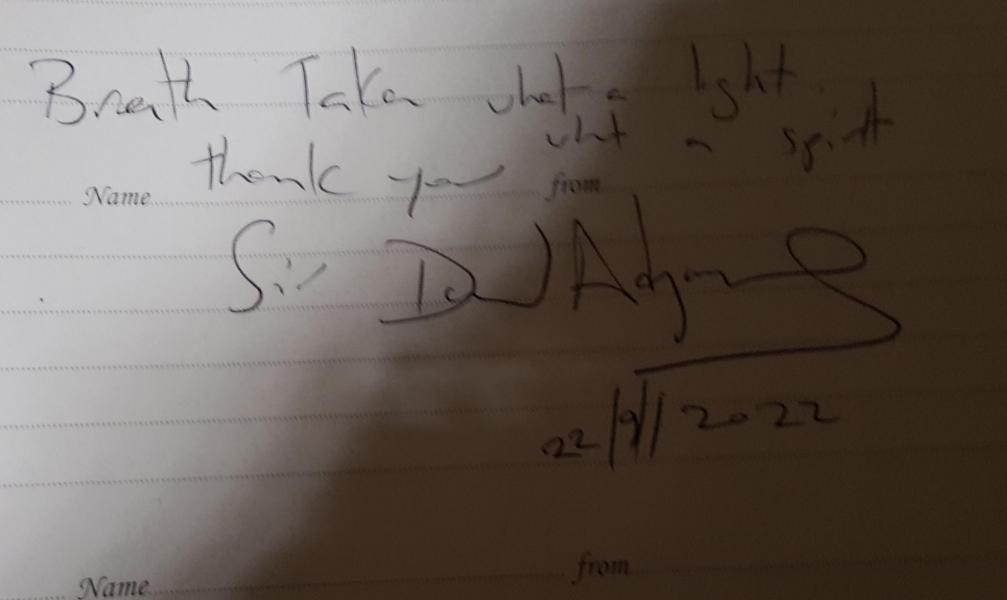 Breath Taken what a light
what a spirit
thank you
Name from
Sir David Adjaye
22/9/2022
Name from